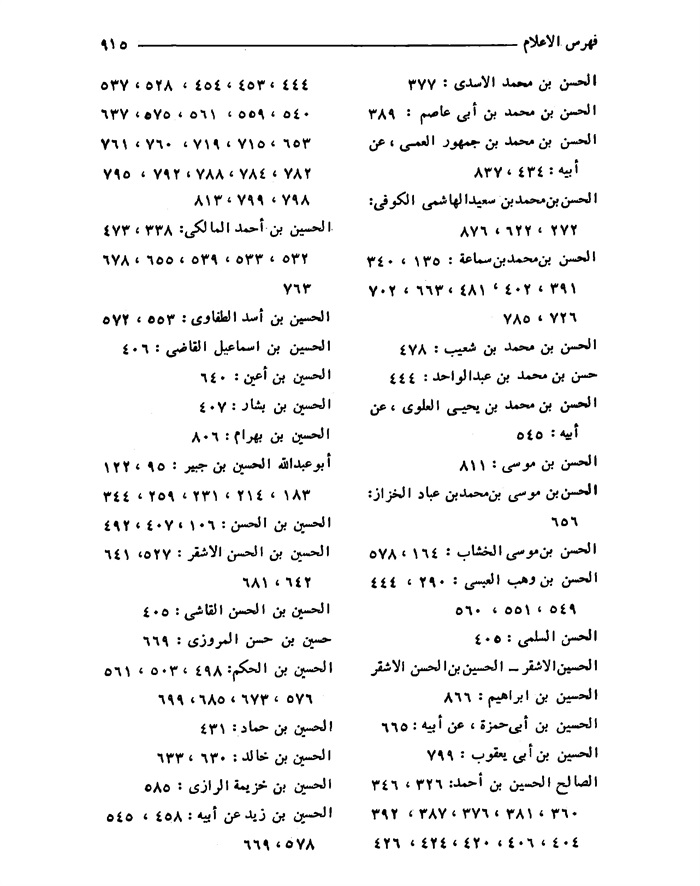 فهرس الأعلام ٩١٥
الحسن بن محمد الاسدى : ٣٧٧
الحسن بن محمد بن أبى عاصم : ٣٨٩
الحسن بن محمد بن جمهور العمى ، عن
أبيه : ٤٣٤ ، ٨٣٧
الحسن بن محمد بن سعيد الهاشمى الكوفى:
٢٧٢ ، ٦٢٢ ، ٨٧٦
الحسن بن محمد بن سماعة : ١٣٥ ، ٣٤٠
٣٩١ ، ٤٠٢ ، ٤٨١ ، ٦٦٣ ، ٧٠٢
٧٢٦ ، ٧٨٥
الحسن بن محمد بن شعيب : ٤٧٨
حسن بن محمد بن عبدالواحد : ٤٤٤
الحسن بن محمد بن يحيى العلوى ، عن
أبيه : ٥٤٥
الحسن بن موسى : ٨١١
الحسن بن موسى بن محمد بن عباد الخزاز:
٦٥٦
الحسن بن موسى الخشاب : ١٦٤ ، ٥٧٨
الحسن بن وهب العبسى : ٢٩٠ ، ٤٤٤
٥٤٩ ، ٥٥١ ، ٥٦٠
الحسن السلمى : ٤٠٥
الحسين الاشقر ــ الحسين بن الحسن الاشقر
الحسين بن ابراهيم : ٨٦٦
الحسين بن أبى حمزة ، عن أبيه : ٦٦٥
الحسين بن أبى يعقوب : ٧٩٩
الصالح الحسين بن أحمد: ٣٢٦ ، ٣٤٦
٣٦٠ ، ٣٨١ ، ٣٧٦ ، ٣٨٧ ، ٣٩٢
٤٠٤ ، ٤٠٦ ، ٤٢٠ ، ٤٢٤ ، ٤٢٦
٤٤٤ ، ٤٥٣ ، ٤٥٤ ، ٥٢٨ ، ٥٣٧
٥٤٠ ، ٥٥٩ ، ٥٦١ ، ٥٧٥ ، ٦٣٧
٦٥٣ ، ٧١٥ ، ٧١٩ ، ٧٦٠ ، ٧٦١
٧٨٢ ، ٧٨٤ ، ٧٨٨ ، ٧٩٢ ، ٧٩٥
٧٩٨ ، ٧٩٩ ، ٨١٣
الحسين بن أحمد المالكى: ٣٣٨ ، ٤٧٣
٥٣٢ ، ٥٣٣ ، ٥٣٩ ، ٦٥٥ ، ٦٧٨
٧٦٣
الحسين بن أسد الطفاوى : ٥٥٣ ، ٥٧٢
الحسين بن اسماعيل القاضى : ٤٠٦
الحسين بن أعين : ٦٤٠
الحسين بن بشار : ٤٠٧
الحسين بن بهرام : ٨٠٦
أبوعبدالله الحسين بن جبير : ٩٥ ، ١٢٢
١٨٣ ، ٢١٤ ، ٢٣١ ، ٢٥٩ ، ٣٤٤
الحسين بن الحسن : ١٠٦ ، ٤٠٧ ، ٤٩٢
الحسين بن الحسن الاشقر : ٥٢٧، ٦٤١
٦٤٢ ، ٦٨١
الحسين بن الحسن القاشى : ٤٠٥
حسين بن حسن المروزى : ٦٦٩
الحسين بن الحكم: ٤٩٨ ، ٥٠٣ ، ٥٦١
٥٧٦ ، ٦٧٣ ، ٦٨٥ ، ٦٩٩
الحسين بن حماد : ٤٣١
الحسين بن خالد : ٦٣٠ ، ٦٣٣
الحسين بن خزيمة الرازى : ٥٨٥
الحسين بن زيد عن أبيه : ٤٥٨ ، ٥٤٥
٥٧٨ ، ٦٦٩